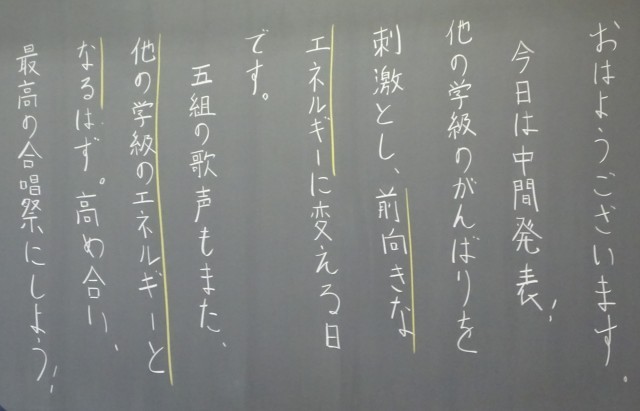 おはようございます。
今日は中間発表!
他の学級のがんばりを
刺激とし、前向きな
エネルギーに変える日
です。
五組の歌声もまた、
他の学級のエネルギーと
なるはず。高め合い、
最高の合唱祭にしよう!